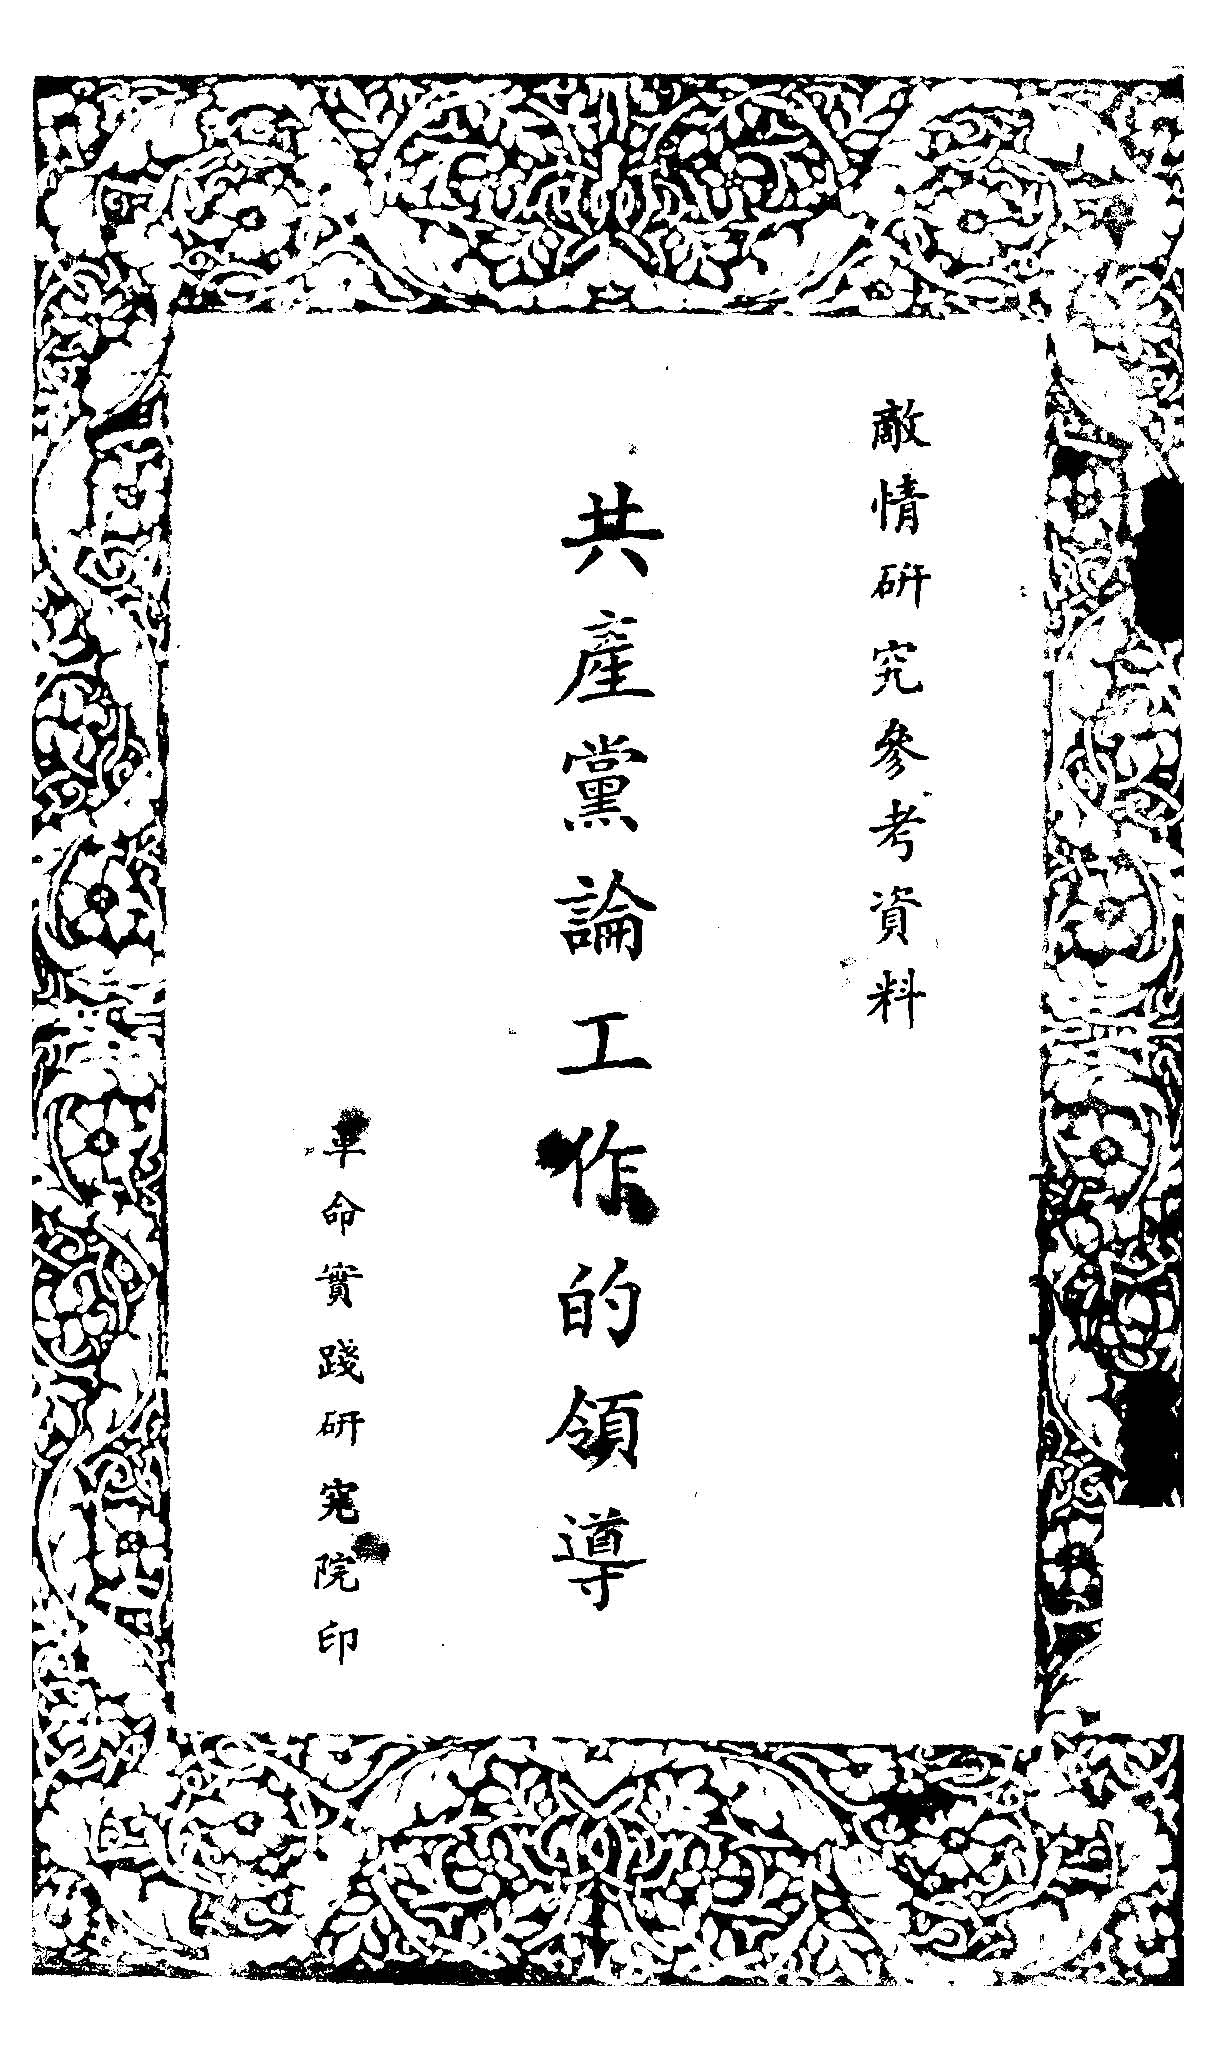 敵情研究參考資料
共產黨論工作的領導
革命實踐研究院印